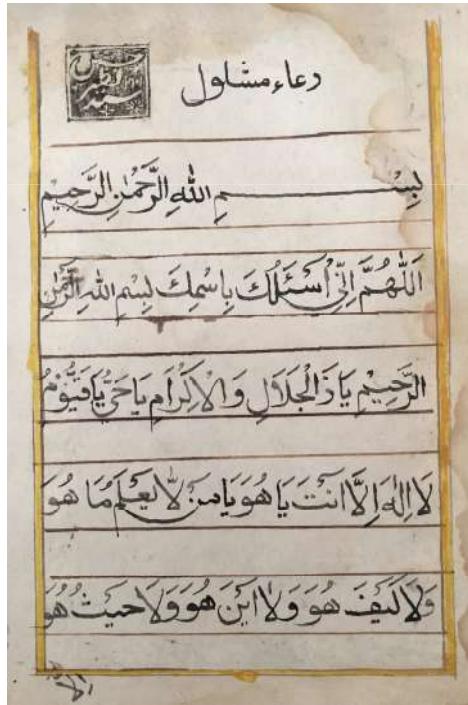 دعاء مشلول
بِسْمِ اللهِ الرَّحْمٰنِ الرَّحِيمِ
اَللّٰهُمَّ اِنِّي اَسْئَلُكَ بِاسْمِكَ بِسْمِ اللهِ الرَّحْمٰنِ
الرَّحِيْمِ يَا ذَالْجَلَالِ وَالْاِكْرَامِ يَا حَيُّ يَا قَيُّوْمُ
لَا اِلٰهَ اِلَّا اَنْتَ يَا هُوَ يَا مَنْ لَّا يَعْلَمُ مَا هُوَ
وَلَا كَيْفَ هُوَ وَلَا اَيْنَ هُوَ وَلَا حَيْثُ هُوَ
اِلَّا